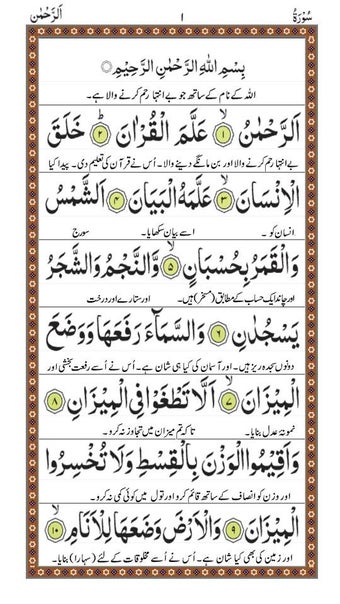 سُوْرَةُ ١ اَلرَّحْمٰن
بِسْمِ اللّٰهِ الرَّحْمٰنِ الرَّحِيْمِ
اللہ کے نام کے ساتھ جو بے انتہا رحم کرنے والا ہے۔
اَلرَّحْمٰنُ ۙ﴿١﴾ عَلَّمَ الْقُرْاٰنَ ؕ﴿٢﴾ خَلَقَ
بے انتہا رحم کرنے والا اور بن مانگے دینے والا۔ اُس نے قرآن کی تعلیم دی۔ پیدا کیا
الْاِنْسَانَ ۙ﴿٣﴾ عَلَّمَهُ الْبَيَانَ ﴿٤﴾ اَلشَّمْسُ
انسان کو۔ اسے بیان سکھایا۔ سورج
وَالْقَمَرُ بِحُسْبَانٍ ۙ﴿٥﴾ وَّالنَّجْمُ وَالشَّجَرُ
اور چاند ایک حساب کے مطابق (مسخر) ہیں۔ اور ستارے اور درخت
يَسْجُدٰنِ ﴿٦﴾ وَالسَّمَآءَ رَفَعَهَا وَوَضَعَ
دونوں سجدہ ریز ہیں۔ اور آسمان کی کیا ہی شان ہے۔ اُس نے اُسے رفعت بخشی اور
الْمِيْزَانَ ۙ﴿٧﴾ اَلَّا تَطْغَوْا فِى الْمِيْزَانِ ﴿٨﴾
نمونۂ عدل بنایا۔ تاکہ تم میزان میں تجاوز نہ کرو۔
وَاَقِيْمُوا الْوَزْنَ بِالْقِسْطِ وَلَا تُخْسِرُوا
اور وزن کو انصاف کے ساتھ قائم کرو اور تول میں کوئی کمی نہ کرو۔
الْمِيْزَانَ ﴿٩﴾ وَالْاَرْضَ وَضَعَهَا لِلْاَنَامِ ۙ﴿١٠﴾
اور زمین کی بھی کیا شان ہے۔ اُس نے اُسے مخلوقات کے لئے (سہارا) بنایا۔